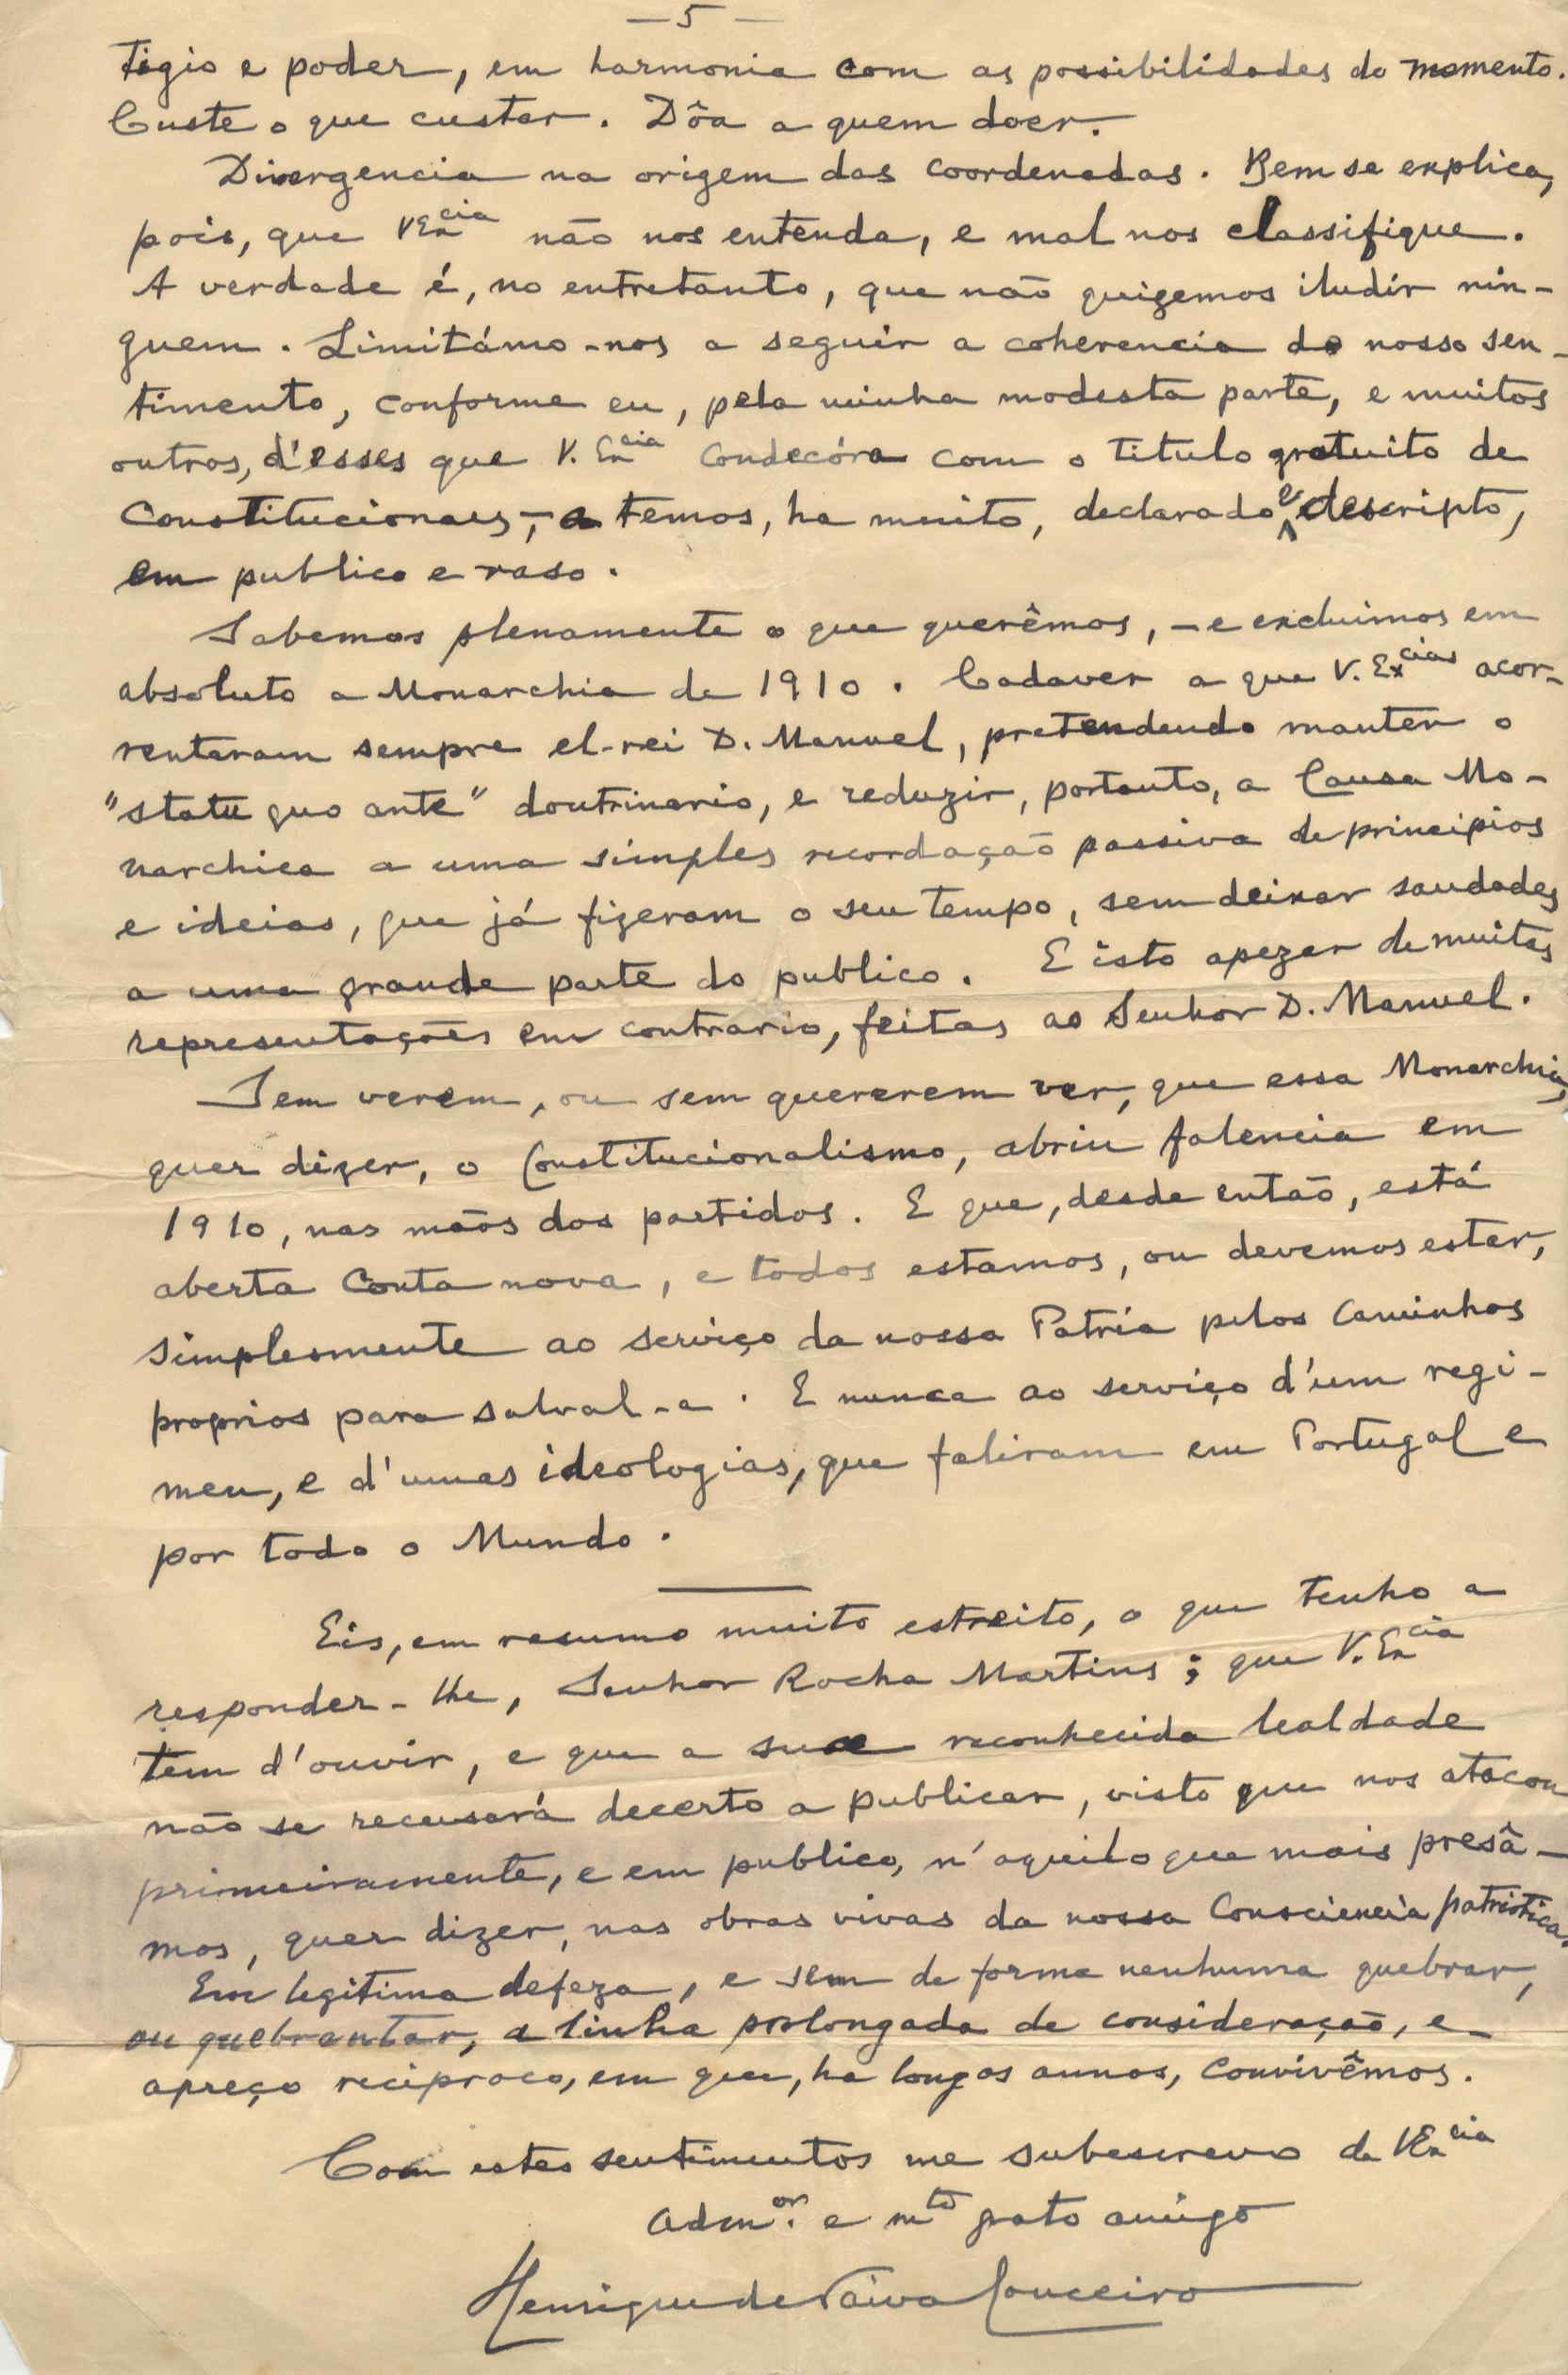 —5—
tigio e poder, em harmonia com as possibilidades do momento.
Custe o que custar. Dôa a quem doer.
Divergencia na origem das coordenadas. Bem se explica,
pois, que VEx^cia não nos entenda, e mal nos classifique.
A verdade é, no entretanto, que não quizemos iludir nin-
guem. Limitámo-nos a seguir a coherencia do nosso sen-
timento, conforme eu, pela minha modesta parte, e muitos
outros, d'esses que V. Ex^cia condecóra com o titulo gratuito de
Constitucionaes,- a temos, ha muito, declarado e descripto,
em publico e raso.
Sabemos plenamente o que querêmos, - e excluimos em
absoluto a Monarchia de 1910. Cadaver a que V. Ex^cias acor-
rentaram sempre el-rei D. Manuel, pretendendo manter o
"statu quo ante" doutrinario, e reduzir, portanto, a Causa Mo-
narchica a uma simples recordação passiva de principios
e ideias, que já fizeram o seu tempo, sem deixar saudades
a uma grande parte do publico. E isto apezar de muitas
representações em contrario, feitas ao Senhor D. Manuel.
Sem verem, ou sem quererem ver, que essa Monarchia,
quer dizer, o Constitucionalismo, abriu falencia em
1910, nas mãos dos partidos. E que, desde então, está
aberta conta nova, e todos estamos, ou devemos estar,
simplesmente ao serviço da nossa Patria pelos caminhos
proprios para salval-a. E nunca ao serviço d'um regi-
men, e d'umas ideologias, que faliram em Portugal e
por todo o Mundo.
Eis, em resumo muito estreito, o que tenho a
responder-lhe, Senhor Rocha Martins; que V. Ex^cia
tem d'ouvir, e que a sua reconhecida lealdade
não se recusará decerto a publicar, visto que nos atacou
primeiramente, e em publico, n'aquilo que mais presâ-
mos, quer dizer, nas obras vivas da nossa Consciencia patriotica.
Em legitima defeza, e sem de forma nenhuma quebrar,
ou quebrantar, a linha prolongada de consideração, e
apreço reciproco, em que, ha longos annos, convivêmos.
Com estes sentimentos me subescrevo de VEx^cia
adm^or. e m^to grato amigo
Henrique de Paiva Couceiro